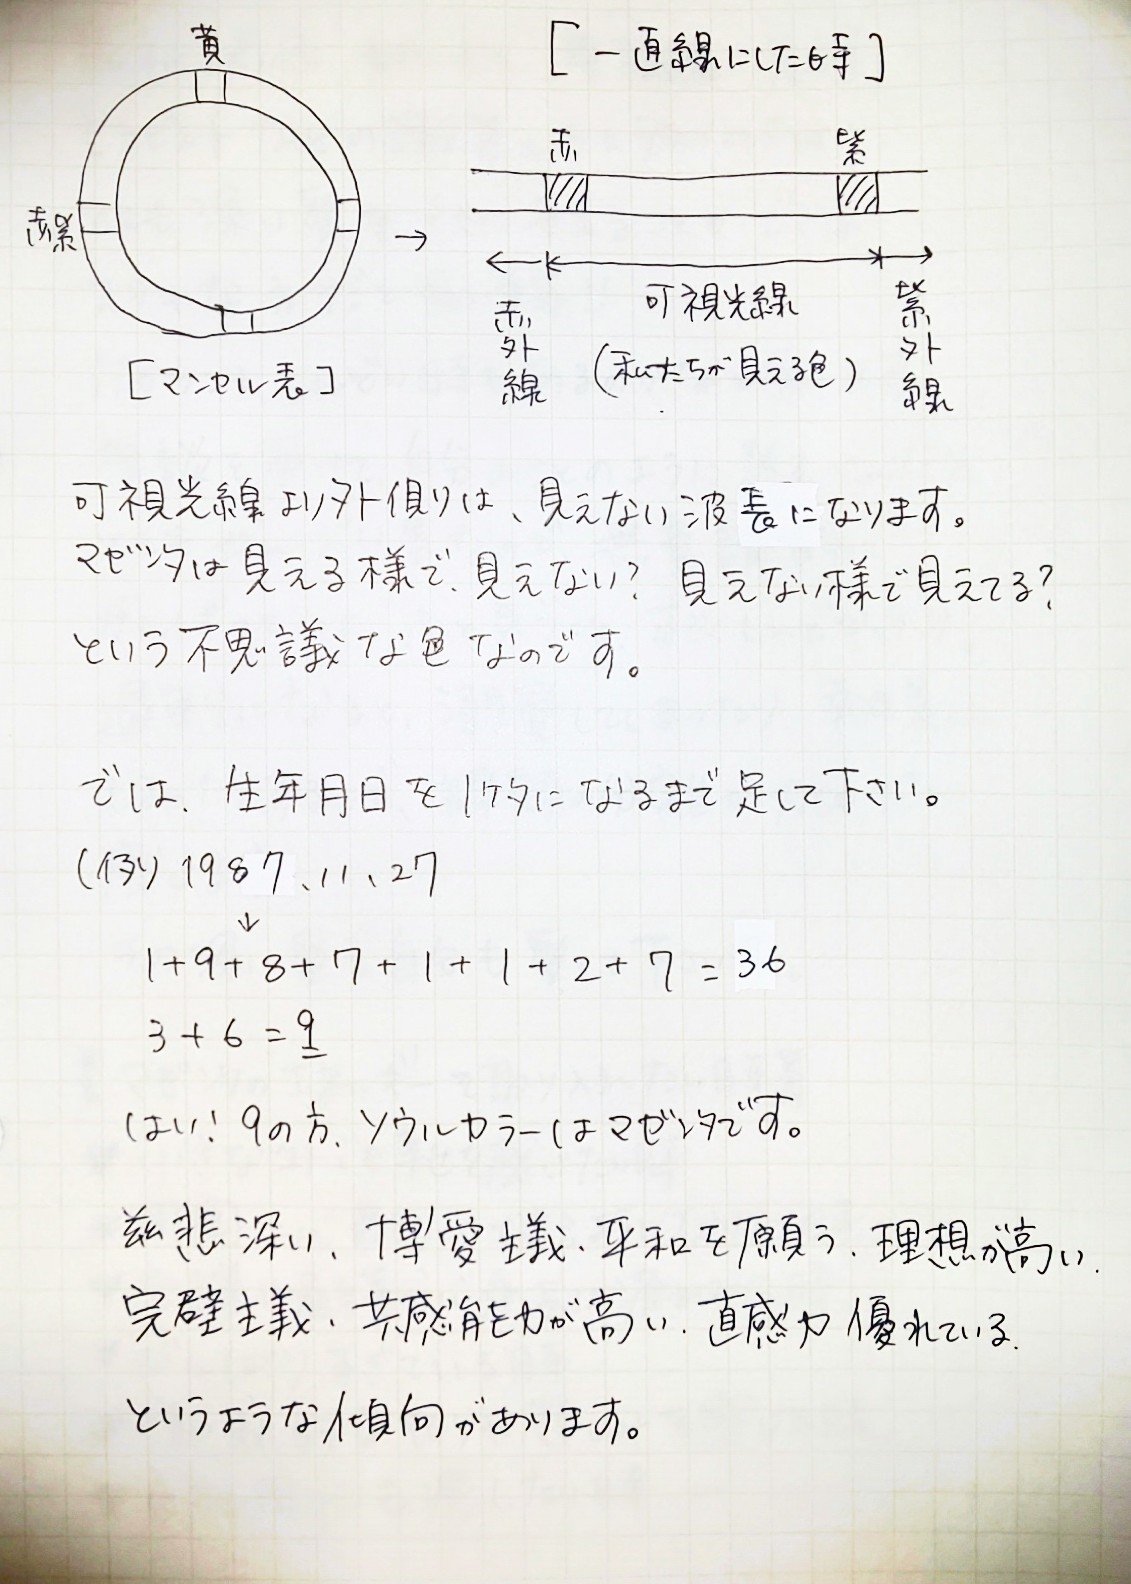 黄
赤紫
[マンセル表]
→
[一直線にした時]
赤
紫
赤外線
可視光線
(私たちが見える色)
紫外線
可視光線より外側は、見えない波長になります。
マゼンタは見える様で、見えない? 見えない様で見えてる?
という不思議な色なのです。
では、生年月日を1ケタになるまで足して下さい。
(例) 1987、11、27
↓
1+9+8+7+1+1+2+7=36
3+6=9
はい! 9の方、ソウルカラーはマゼンタです。
慈悲深い、博愛主義、平和を願う、理想が高い、
完璧主義、共感能力が高い、直感力優れている、
というような傾向があります。